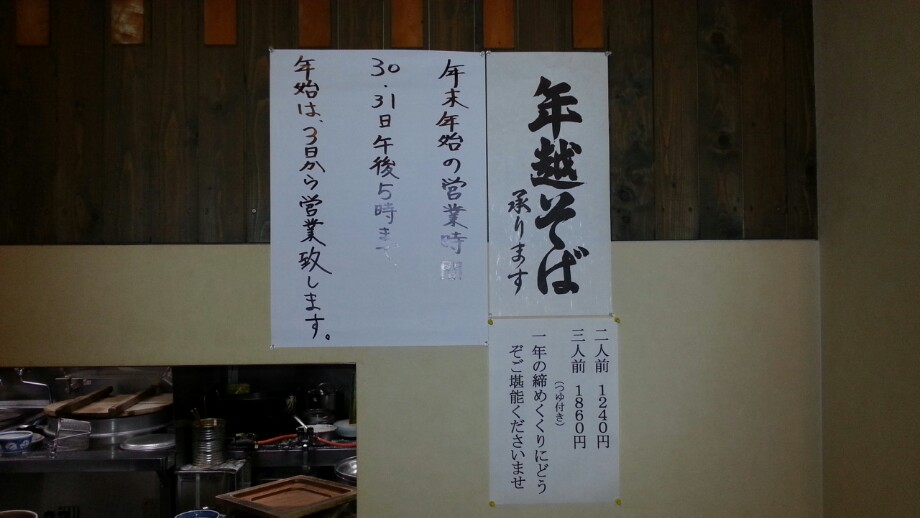 年越そば
承ります
二人前 1240円
三人前 1860円
(つゆ付き)
一年の締めくくりにどう
ぞご堪能くださいませ
年末年始の営業時間
30.31日午後5時まで
年始は、3日から営業致します。